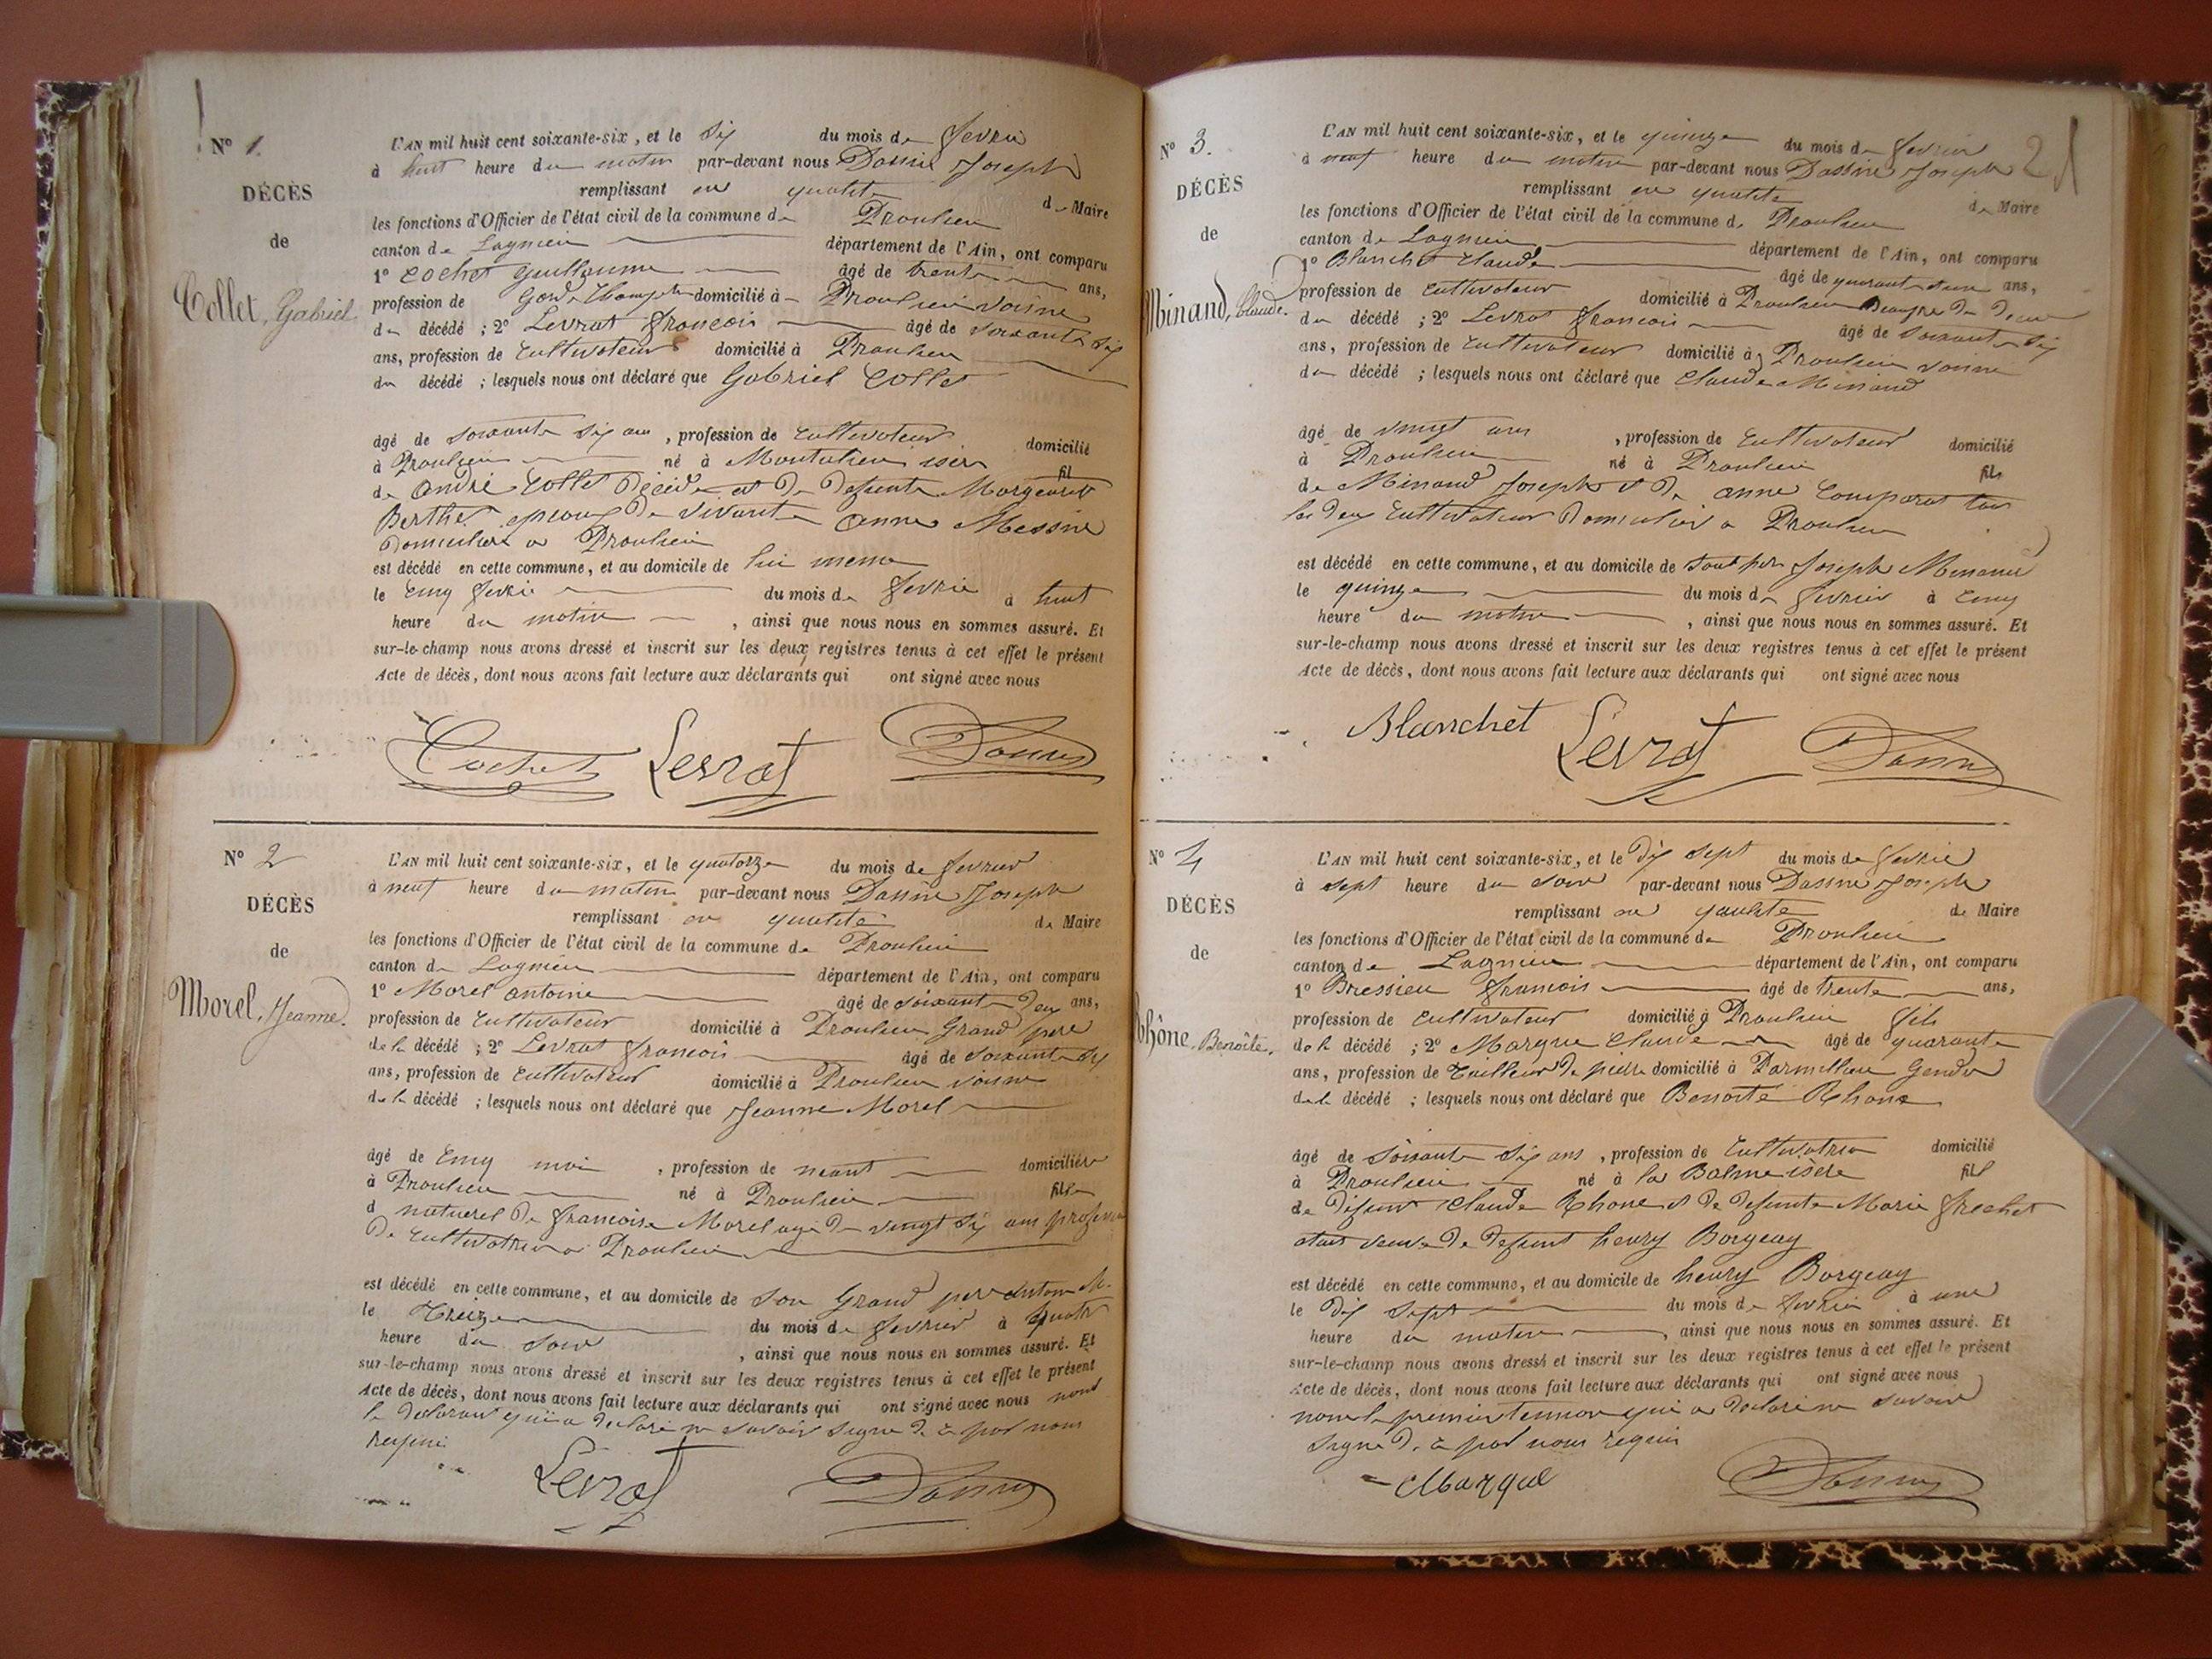 N° 1.
DÉCÈS
de
Collet, Gabriel.
L'AN mil huit cent soixante-six, et le six du mois de fevrie
à huit heure du matin par-devant nous Dassin Joseph
remplissant en qualite de Maire
les fonctions d'Officier de l'état civil de la commune de Proulieu
canton de Lagnieu département de l'Ain, ont comparu
1° Cochet Guillaume âgé de trente ans,
profession de Garde Champetr domicilié à Proulieu voisine
du décédé ; 2° Levrat francois âgé de soixante six
ans, profession de Cultivateur domicilié à Proulieu
du décédé ; lesquels nous ont déclaré que Gabriel Collet
âgé de soixante six ans, profession de Cultivateur domicilié
à Proulieu né à Montalieu isere fil
de André Collet décédé et de defunte Margeurit
Berthet epoux de vivante Anne Messin
domicilier a Proulieu
est décédé en cette commune, et au domicile de lui meme
le Cinq fevrie du mois de fevrie à huit
heure du matin, ainsi que nous nous en sommes assuré. Et
sur-le-champ nous avons dressé et inscrit sur les deux registres tenus à cet effet le présent
Acte de décès, dont nous avons fait lecture aux déclarants qui ont signé avec nous
Cochet Levrat Dassin
N° 2
DÉCÈS
de
Morel, Jeanne.
L'AN mil huit cent soixante-six, et le quatorze du mois de fevrier
à neuf heure du matin par-devant nous Dassin Joseph
remplissant en qualité de Maire
les fonctions d'Officier de l'état civil de la commune de Proulieu
canton de Lagnieu département de l'Ain, ont comparu
1° Morel Antoine âgé de soixante deux ans,
profession de Cultivateur domicilié à Proulieu Grand pere
de la décédé ; 2° Levrat francois âgé de soixante six
ans, profession de Cultivateur domicilié à Proulieu voisine
de la décédé ; lesquels nous ont déclaré que Jeanne Morel
âgé de Cinq moi, profession de neant domiciliée
à Proulieu né à Proulieu fille
d naturel de francoise Morel agé de vingt six ans profession
de Cultivatrice a Proulieu
est décédé en cette commune, et au domicile de son Grand pere Antoine M.
le Treize du mois de fevrier à quatr
heure du soir, ainsi que nous nous en sommes assuré. Et
sur-le-champ nous avons dressé et inscrit sur les deux registres tenus à cet effet le présent
Acte de décès, dont nous avons fait lecture aux déclarants qui ont signé avec nous non
le declarant qui a declaré ne savoir signe de ce par nous
requi
Levrat Dassin
21
N° 3.
DÉCÈS
de
Minand, Claude.
L'AN mil huit cent soixante-six, et le quinze du mois de fevrier
à neuf heure du matin par-devant nous Dassin Joseph
remplissant en qualite de Maire
les fonctions d'Officier de l'état civil de la commune d. Proulieu
canton de Lagnieu département de l'Ain, ont comparu
1° Blanchet Claude âgé de quarant ans,
profession de Cultivateur domicilié à Proulieu
du décédé ; 2° Levrat francois âgé de soixante six
ans, profession de Cultivateur domicilié à Proulieu voisine
du décédé ; lesquels nous ont déclaré que Claude Minand
âgé de vingt ans, profession de Cultivateur domicilié
à Proulieu né à Proulieu fils
de Minand Joseph et de Anne Comparat tous
les deux Cultivateur domicilier a Proulieu
est décédé en cette commune, et au domicile de sont per Joseph Minand
le quinze du mois de fevrier à Cinq
heure du matin, ainsi que nous nous en sommes assuré. Et
sur-le-champ nous avons dressé et inscrit sur les deux registres tenus à cet effet le présent
Acte de décès, dont nous avons fait lecture aux déclarants qui ont signé avec nous
Blanchet Levrat Dassin
N° 4
DÉCÈS
de
Rhône, Benoîte.
L'AN mil huit cent soixante-six, et le dix sept du mois de fevrie
à sept heure du soir par-devant nous Dassin Joseph
remplissant en qualite de Maire
les fonctions d'Officier de l'état civil de la commune de Proulieu
canton de Lagnieu département de l'Ain, ont comparu
1° Bressieu francois âgé de trente ans,
profession de Cultivateur domicilié à Proulieu fils
de la décédé ; 2° Marque Claude âgé de quarante
ans, profession de Tailleur de pierre domicilié à Parmillieu Gendre
de la décédé ; lesquels nous ont déclaré que Benoite Rhone
âgé de soixante six ans, profession de Cultivatrice domicilié
à Proulieu né à la Balme isere fil
de defunt Claude Rhone et de defunte Marie frechet
etant veuve de defunt henry Borgeay
est décédé en cette commune, et au domicile de henry Borgeay
le dix sept du mois de fevrier à une
heure du matin, ainsi que nous nous en sommes assuré. Et
sur-le-champ nous avons dressé et inscrit sur les deux registres tenus à cet effet le présent
Acte de décès, dont nous avons fait lecture aux déclarants qui ont signé avec nous
non le premier temoin qui a declaré ne savoir
signe de ce par nous requis
Marque Dassin